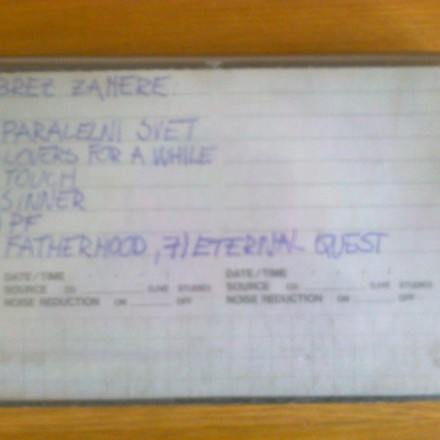 BREZ ZAMERE
PARALELNI SVET
LOVERS FOR A WHILE
TOUCH
SINNER
PF
FATHERHOOD, 7) ETERNAL QUEST
DATE/TIME DATE/TIME
SOURCE CD LIVE STUDIO SOURCE CD LIVE STUDIO
NOISE REDUCTION ON OFF NOISE REDUCTION ON OFF